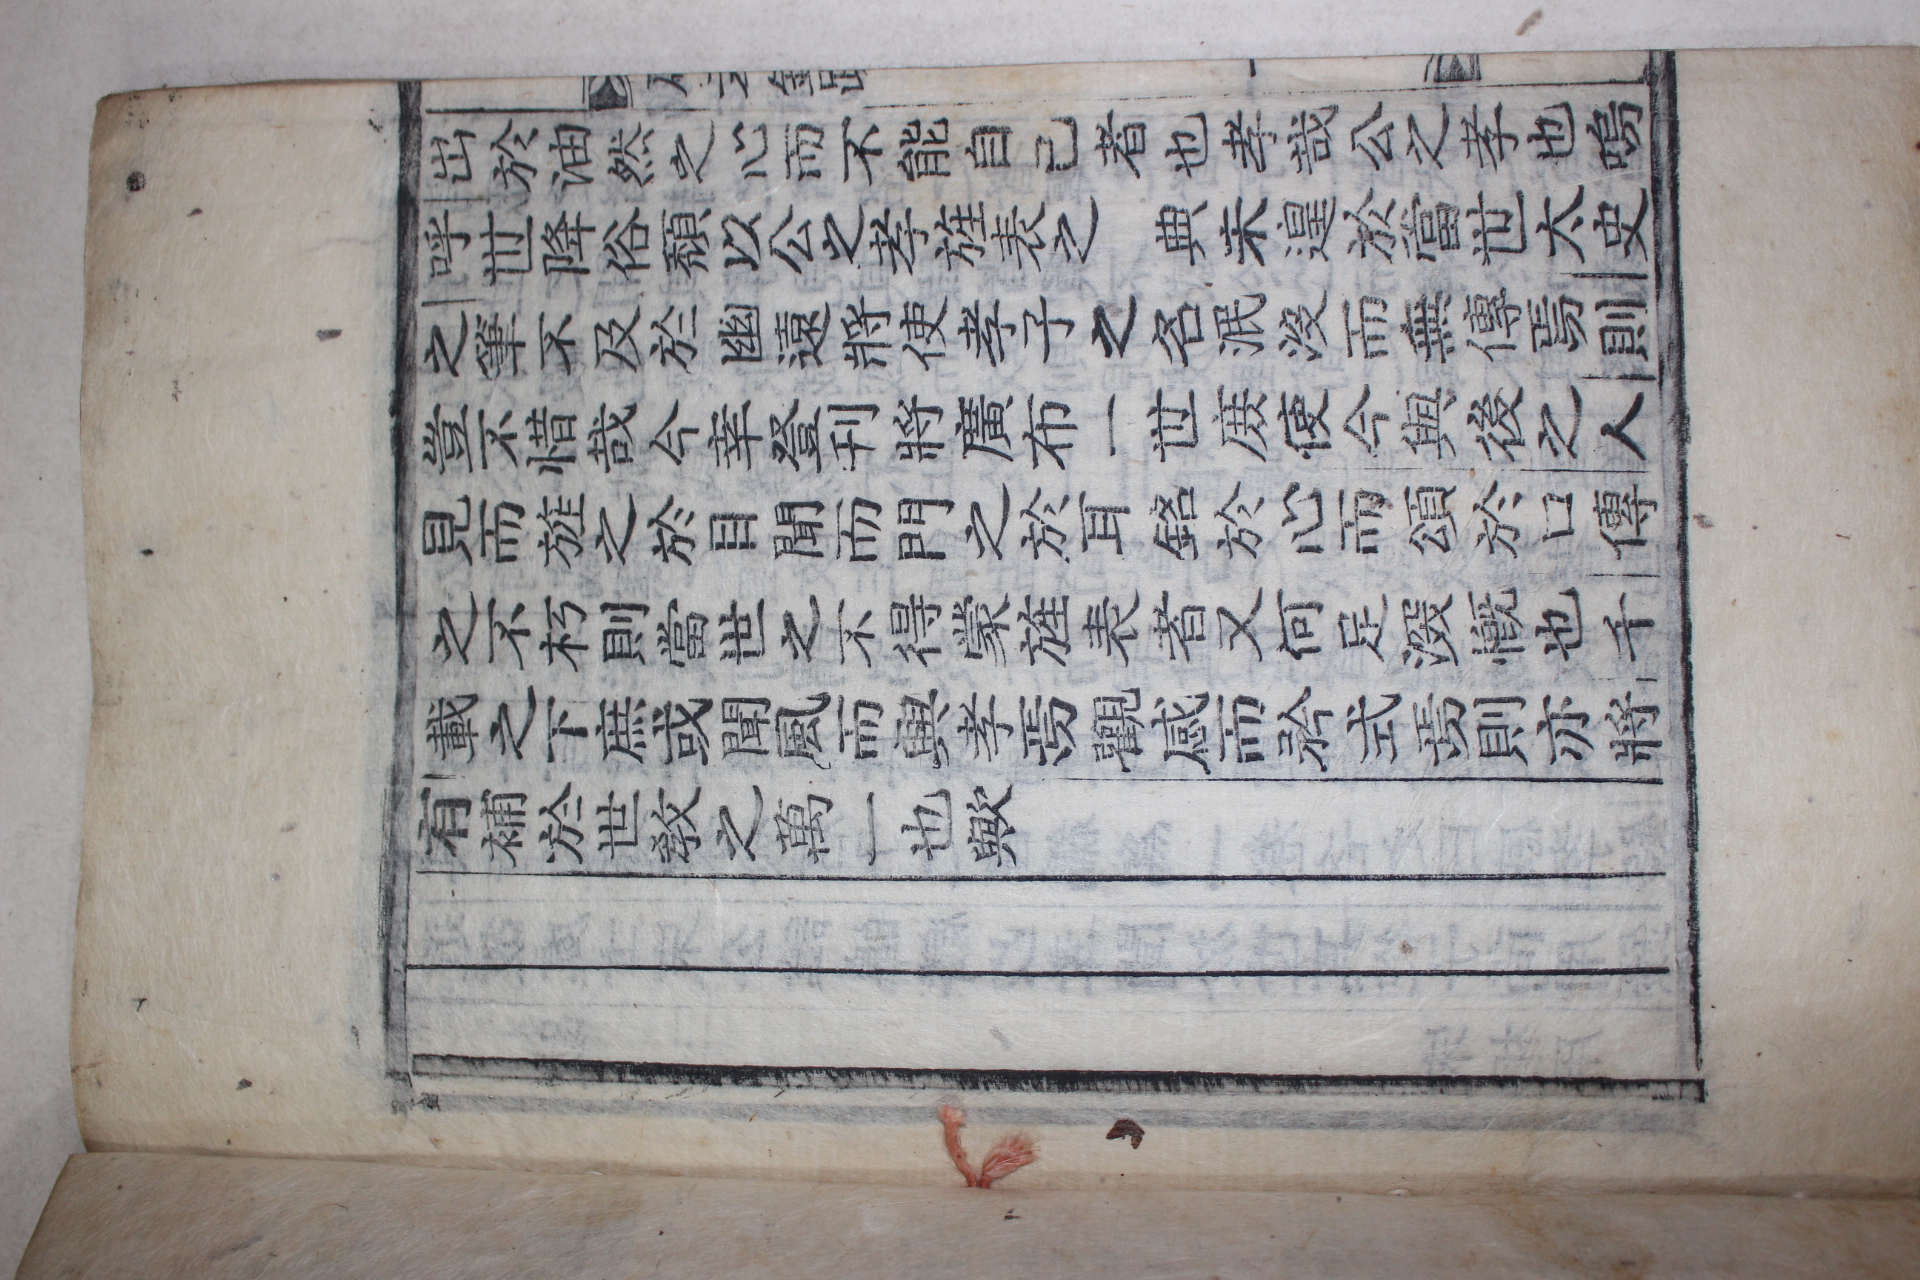 出於油然之心而不能自己者也孝哉公之孝也嗚
呼世降俗頹以公之孝旌表之 典未遑於當世太史
之筆不及於幽遠將使孝子之名泯沒而無傳焉則
豈不惜哉今幸登刊將廣布一世庶使今與後之人
見而旌之於目聞而門之於耳銘於心而頌於口傳
之不朽則當世之不得蒙旌表者又何足深慨也千
載之下庶或聞風而興孝焉觀感而矜式焉則亦將
有補於世敎之萬一也歟